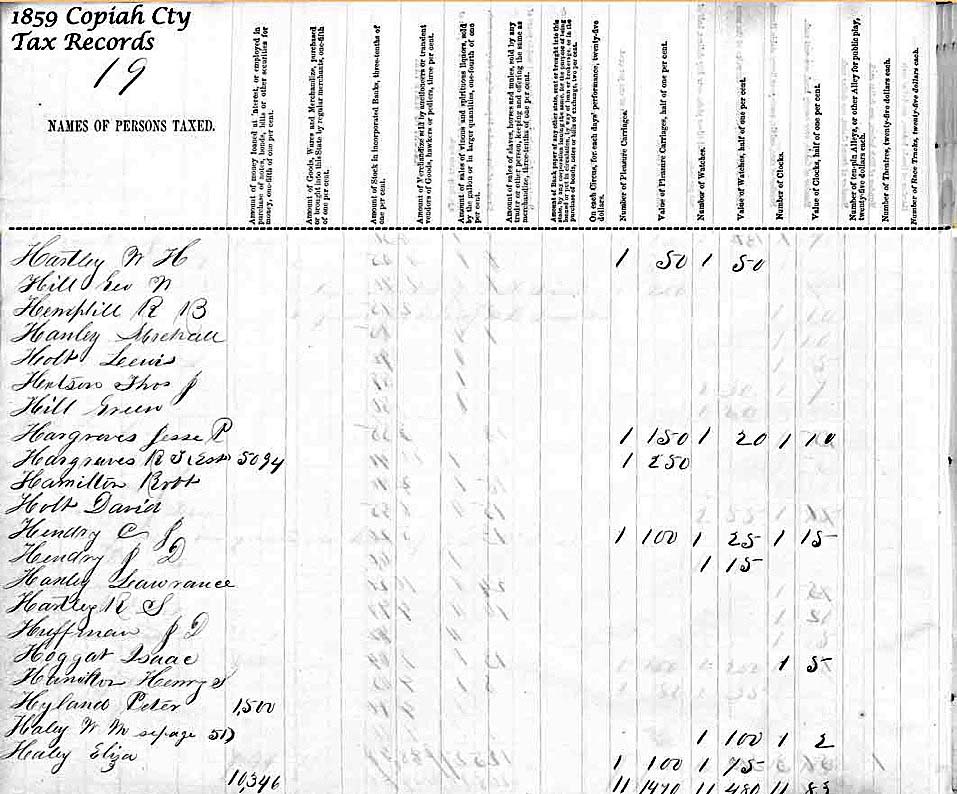 1859 Copiah Cty
Tax Records
19
NAMES OF PERSONS TAXED.
Amount of money loaned at interest, employed in purchase of notes, bonds, bills or other securities for money, one-fifth of one per cent.
Amount of Goods, Wares and Merchandize, purchased or brought into this State by regular merchants, one-fifth of one per cent.
Amount of Stock in Incorporated Banks, three-tenths of one per cent.
Amount of Vendibles sold by auctioneers or transient vendors of Goods, hawkers or pedlers, three per cent.
Amount of sales of vinous and spirituous liquors, sold by the gallon or in larger quantities, one-fourth of one per cent.
Amount of sales of slaves, horses and mules, sold by any trader or other person, keeping and offering the same as merchandize, three-tenths of one per cent.
Amount of Bank paper of any other state, sent or brought into this state, by any corporation issuing the same, for the purpose of being loaned or put in circulation, by way of loan or brokerage, or in the purchase of bonds, notes or bills of exchange, two per cent.
On each Circus, for each days' performance, twenty-five dollars.
Number of Pleasure Carriages.
Value of Pleasure Carriages, half of one per cent.
Number of Watches.
Value of Watches, half of one per cent.
Number of Clocks.
Value of Clocks, half of one per cent.
Number of ten-pin Alleys, or other Alley for public play, twenty-five dollars each.
Number of Theatres, twenty-five dollars each.
Number of Race Tracks, twenty-five dollars each.
Hartley W H 1 50 1 50
Hill Geo W
Hemphill R B
Hanley Michael
Holt Lewis
Hutson Thos J
Hill Green
Hargraves Jesse P 1 150 1 20 1 10
Hargraves R S Est 5094 1 250
Hamilton Robt
Holt David
Hendry C J 1 100 1 25 1 15
Hendry J D 1 15
Hanley Lawrance
Hartley R S
Huffman J D
Hoggat Isaac 1 5
Hamilton Henry S
Hyland Peter 1,500
Haley W M se page 51) 1 100 1 2
Healy Eliza 1 100 1 75
10,346 11 1470 11 480 11 83